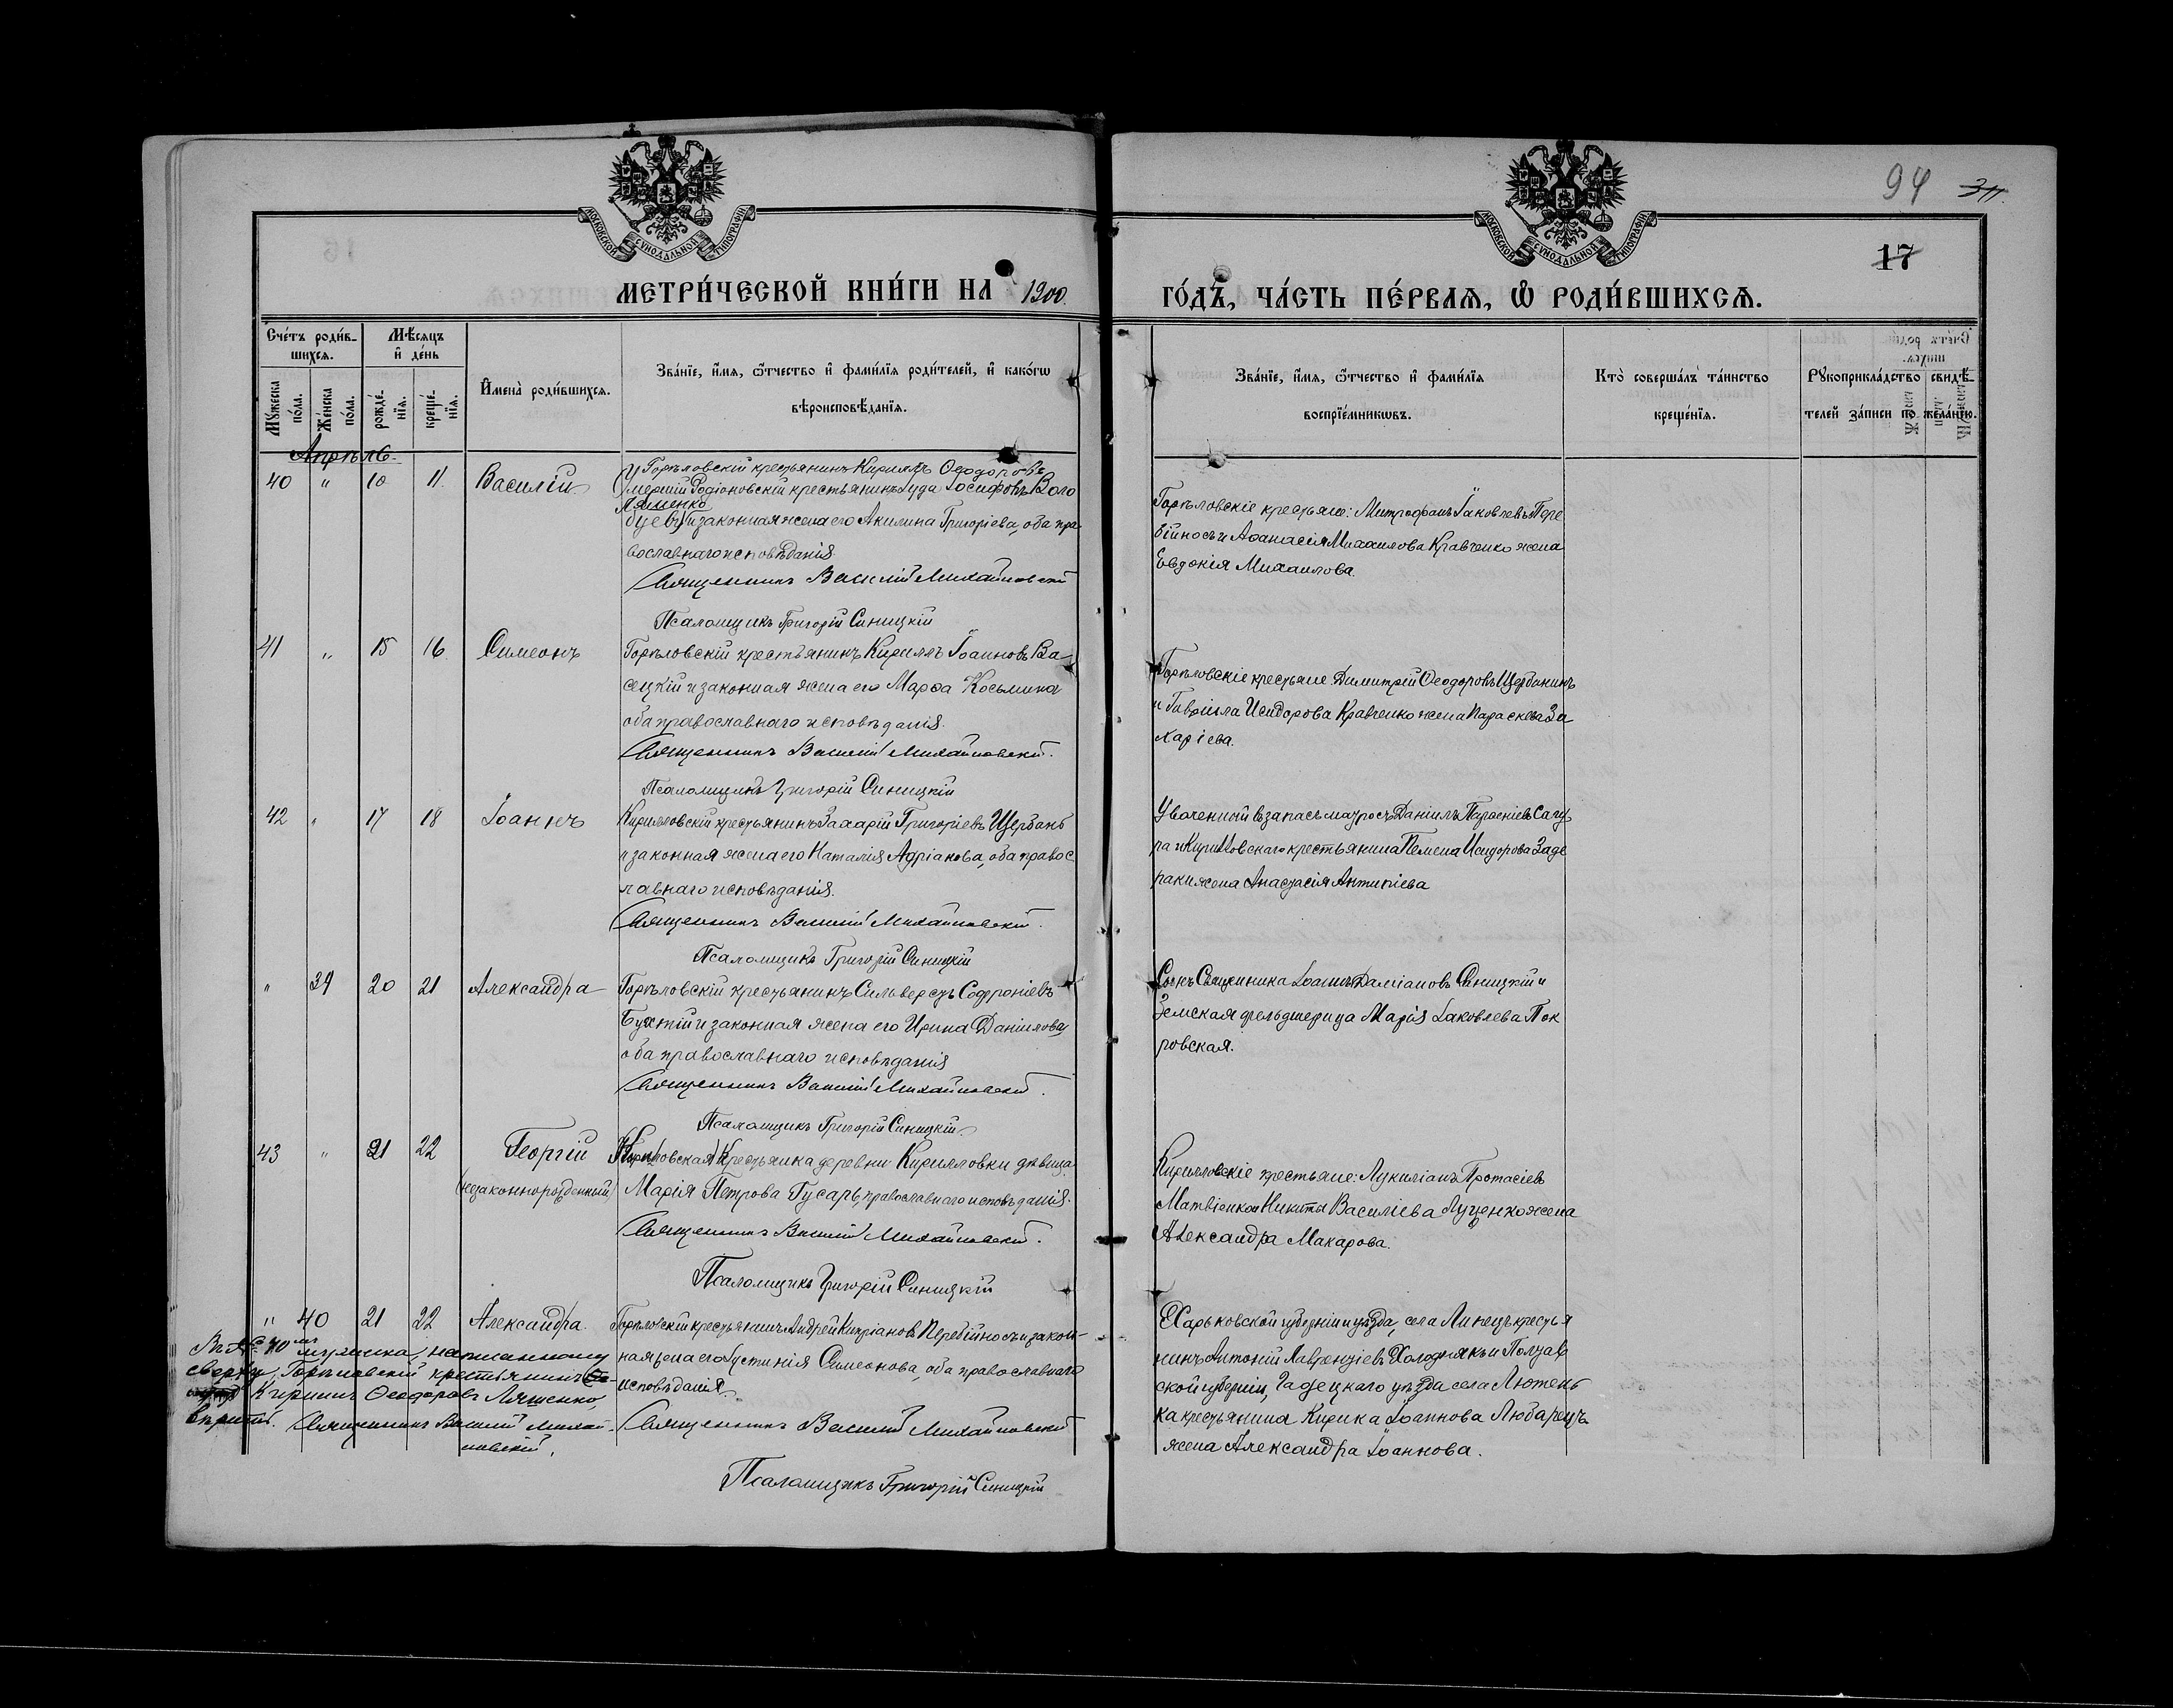 МОСКОВСКОЙ СУНОДАЛЬНОЙ ТИПОГРАФІИ
МОСКОВСКОЙ СУНОДАЛЬНОЙ ТИПОГРАФІИ
94
17
МЕТРИ́ЧЕСКОЙ КНИ́ГИ НА 1900.
ГО́ДЪ, ЧА́СТЬ ПЕ́РВАЯ, Ѡ҆ РОДИ́ВШИХСѦ.
Сче́тъ роди́в-
шихсѧ.
Мѣ́сѧцъ
и҆ де́нь
Мꙋ́жеска
по́ла.
Же́нска
по́ла.
рожде́-
нїѧ.
креще́-
нїѧ.
И҆мена̀ роди́вшихсѧ.
Зва́нїе, и҆́мѧ, ѻ҆́тчество и҆ фами́лїѧ роди́телей, и҆ како́гѡ
вѣроисповѣ́данїѧ.
Зва́нїе, и҆́мѧ, ѻ҆́тчество и҆ фами́лїѧ
воспрїе́мникѡвъ.
Кто̀ соверша́лъ та́инство
креще́нїѧ.
Рꙋкоприкла́дство свидѣ́-
телей за́писи по жела́нїю.
Апрѣль
40 " 10 11 Василій
Горѣловскій крестьянинъ Кириллъ Ѳеодоровъ
Умершій Родіоновскій крестьянинъ Іуда Іосифовъ Воло
Ляшенко
буевъ) и законная жена его Акилина Григоріева, оба пра
вославнаго исповѣданія
Священникъ Василій Михайловскій
Псаломщикъ Григорій Синицкій
Горѣловскіе крестьяне: Митрофанъ Іаковлевъ Пере
бійносъ и Аѳанасія Михаилова Кравченко жена
Евдокія Михаилова.
41 " 15 16 Симеонъ
Горѣловскій крестьянинъ Кириллъ Іоанновъ Ва
сецкій и законная жена его Марѳа Косьмина
оба православнаго исповѣданія.
Священникъ Василій Михайловскій.
Псаломщикъ Григорій Синицкій
Горѣловскіе крестьяне Димитрій Ѳеодоровъ Щербининъ
и Гавріила Исидорова Кравченко жена Параскева За
харіева.
42 " 17 18 Іоаннъ
Кирилловскій крестьянинъ Захарій Григоріевъ Щербань
и законная жена его Наталія Адріанова, оба правос
лавнаго исповѣданія.
Священникъ Василій Михайловскій.
Псаломщикъ Григорій Синицкій
Уволенный въ запасъ матросъ Даніилъ
ра и Кирилловскаго крестьянина Пимена Исидорова Заде
раки жена Анастасія Антипіева
" 39 20 21 Александра
Горѣловскій крестьянинъ Сильвестръ Софроніевъ
и законная жена его Ирина Даніилова,
оба православнаго исповѣданія
Священникъ Василій Михайловскій.
Псаломщикъ Григорій Синицкій.
Сынъ Священника Іоаннъ Даміановъ Синицкій и
Земская фельдшерица Марія Іаковлева Пок
ровская.
43 " 21 22 Георгій
(незаконнорожденный)
Крестьянка деревни Кирилловки дѣвица
Марія Петрова Гусарь, православнаго исповѣданія.
Священникъ Василій Михайловскій.
Псаломщикъ Григорій Синицкій
Кирилловскіе крестьяне: Лукиліанъ Протасіевъ
Матвіенко и Никиты Василіева Луценко жена
Александра Макарова.
" 40 21 22 Александра.
Горѣловскій крестьянинъ Андрей Кипріановъ Перебійносъ и закон-
ная жена его Іустинія Симеонова, оба православнаго
исповѣданія.
Священникъ Василій Михайловскій
Псаломщикъ Григорій Синицкій
Харьковской губерніи и уѣзда, села Липецъ крестья
нинъ Антоній Лаврентіевъ Холоднякъ и Полтав
ской губерніи, Гадецкаго уѣзда села Лютень
ка крестьянина Кирика Іоаннова Любарецъ
жена Александра Іоаннова.
Въ № 40мъ мужеска, написанному
сверху, Горѣловскій крестьянинъ
Кириллъ Ѳеодоровъ Ляшенко,
вѣрить. Священникъ Василій Михай-
ловскій.